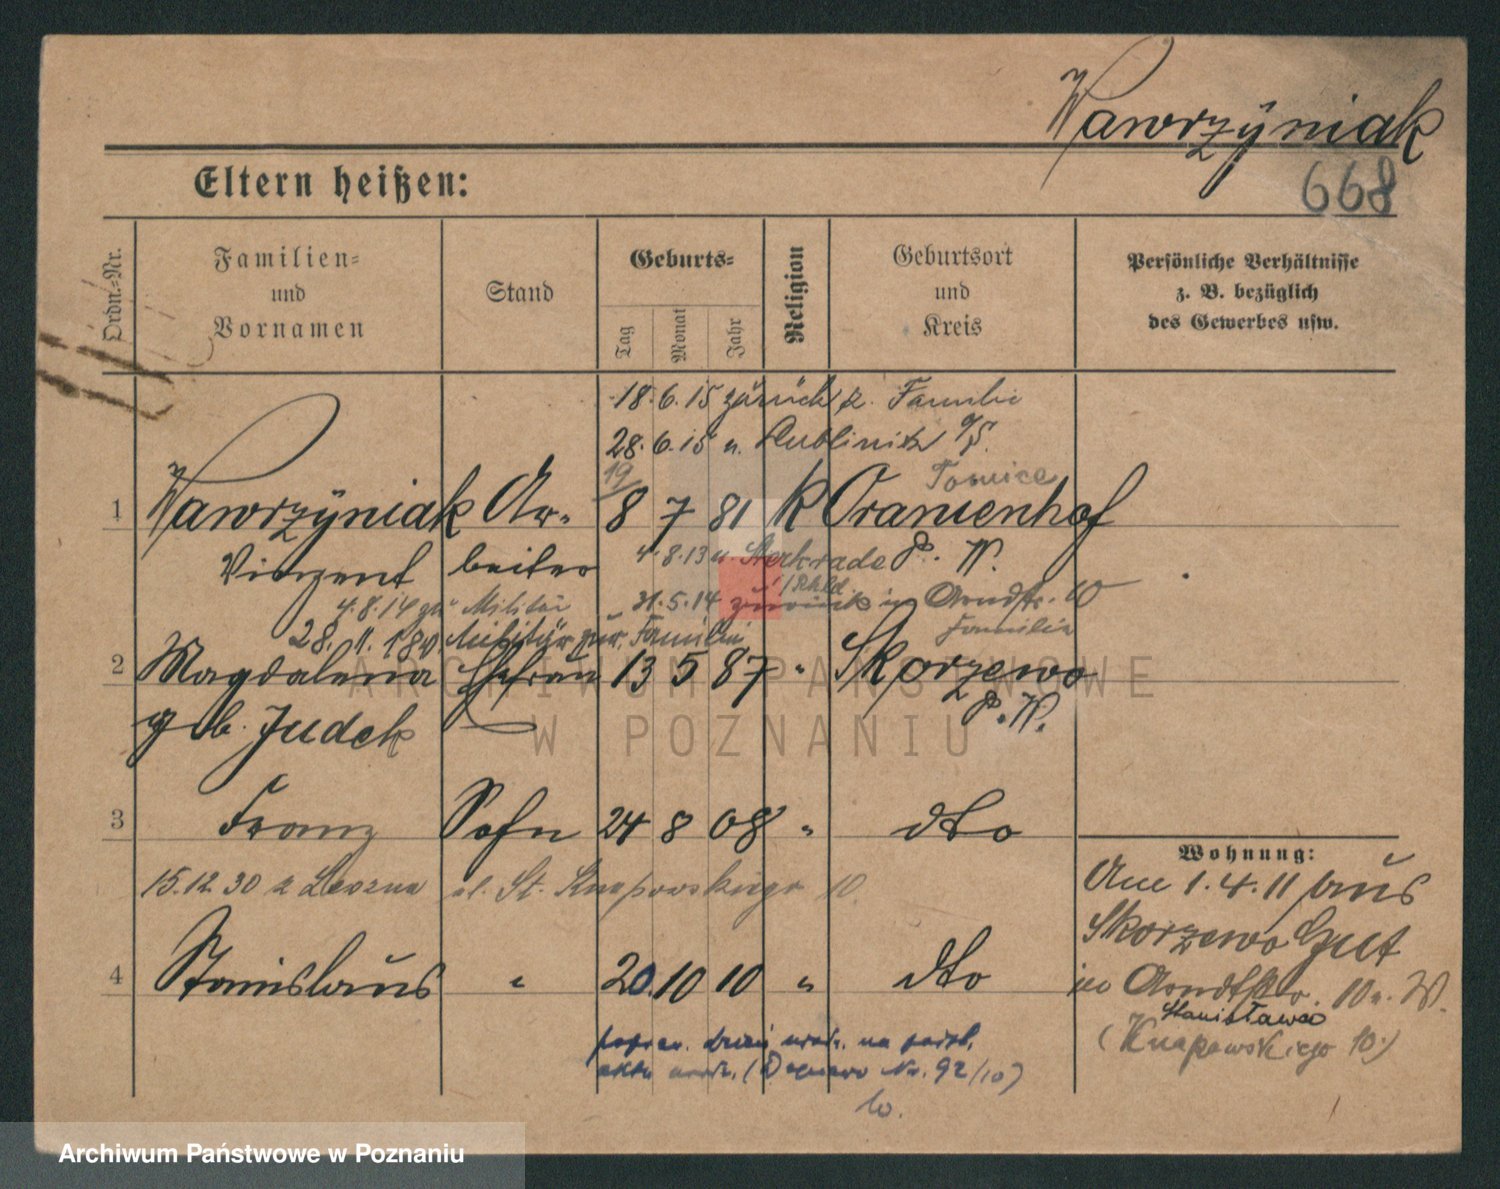 Wawrzyniak
668
Eltern heißen:
Ordn.-Nr.
Familien-
und
Vornamen
Stand
Geburts-
Tag
Monat
Jahr
Religion
Geburtsort
und
Kreis
Persönliche Verhältnisse
z. B. bezüglich
des Gewerbes usw.
18. 6. 15 zurück z. Familie
28. 6. 15 n. Lublinitz O/S.
19
Tomice
1 Wawrzÿniak Ar- 8 7 81 k Oranienhof
Vinzent beiter
4. 8. 13 n Sterkrade P. W.
/Rhld
4.8.14 zu Militär 31.5.14 zurück in Arndtstr. 10
28. 11. 18 v. Militär zur. Familie
Familie
2 Magdalena Ehefrau 13 5 87 " Skorzewo
geb. Judek P. W.
3 Franz Sohn 24 8 08 " dto
Wohnung:
15.12.30 z Leszna ul. St. Knapowskiego 10.
Am 1.4.11 aus
Skorzewo Gut
4 Stanislaus " 20. 10 10 " dto
in Arndtstr. 10 n. W.
Stanisława
(Knapowskiego 10.)
popraw. dzień urodz. na podst.
aktu urodz. (Dopiewo Nr. 92/10)
ARCHIWUM PAŃSTWOWE
W POZNANIU
Archiwum Państwowe w Poznaniu